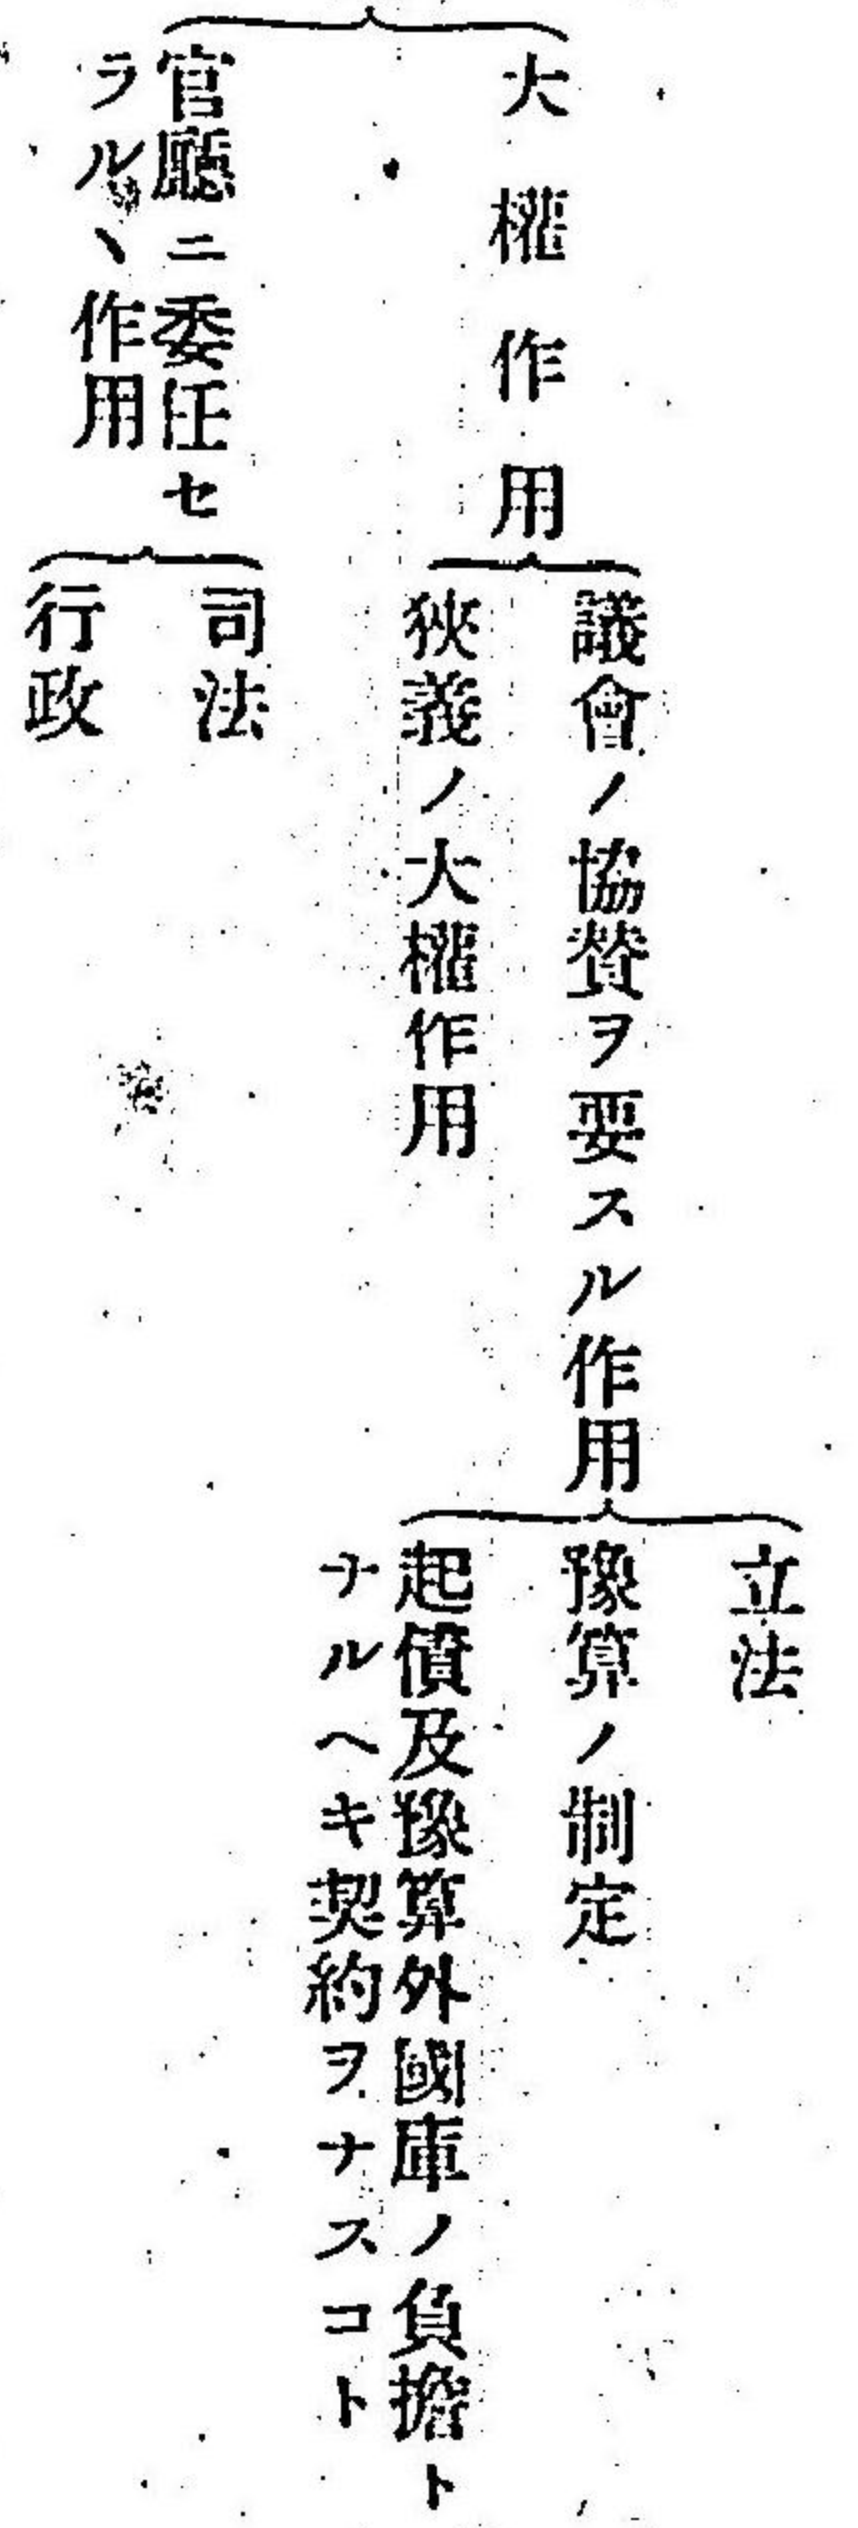 大權作用
議會ノ協賛ヲ要スル作用
立法
豫算ノ制定
起債及豫算外國庫ノ負擔ト
ナルヘキ契約ヲナスコト
狹義ノ大權作用
官廳ニ委任セ
ラルヽ作用
司法
行政